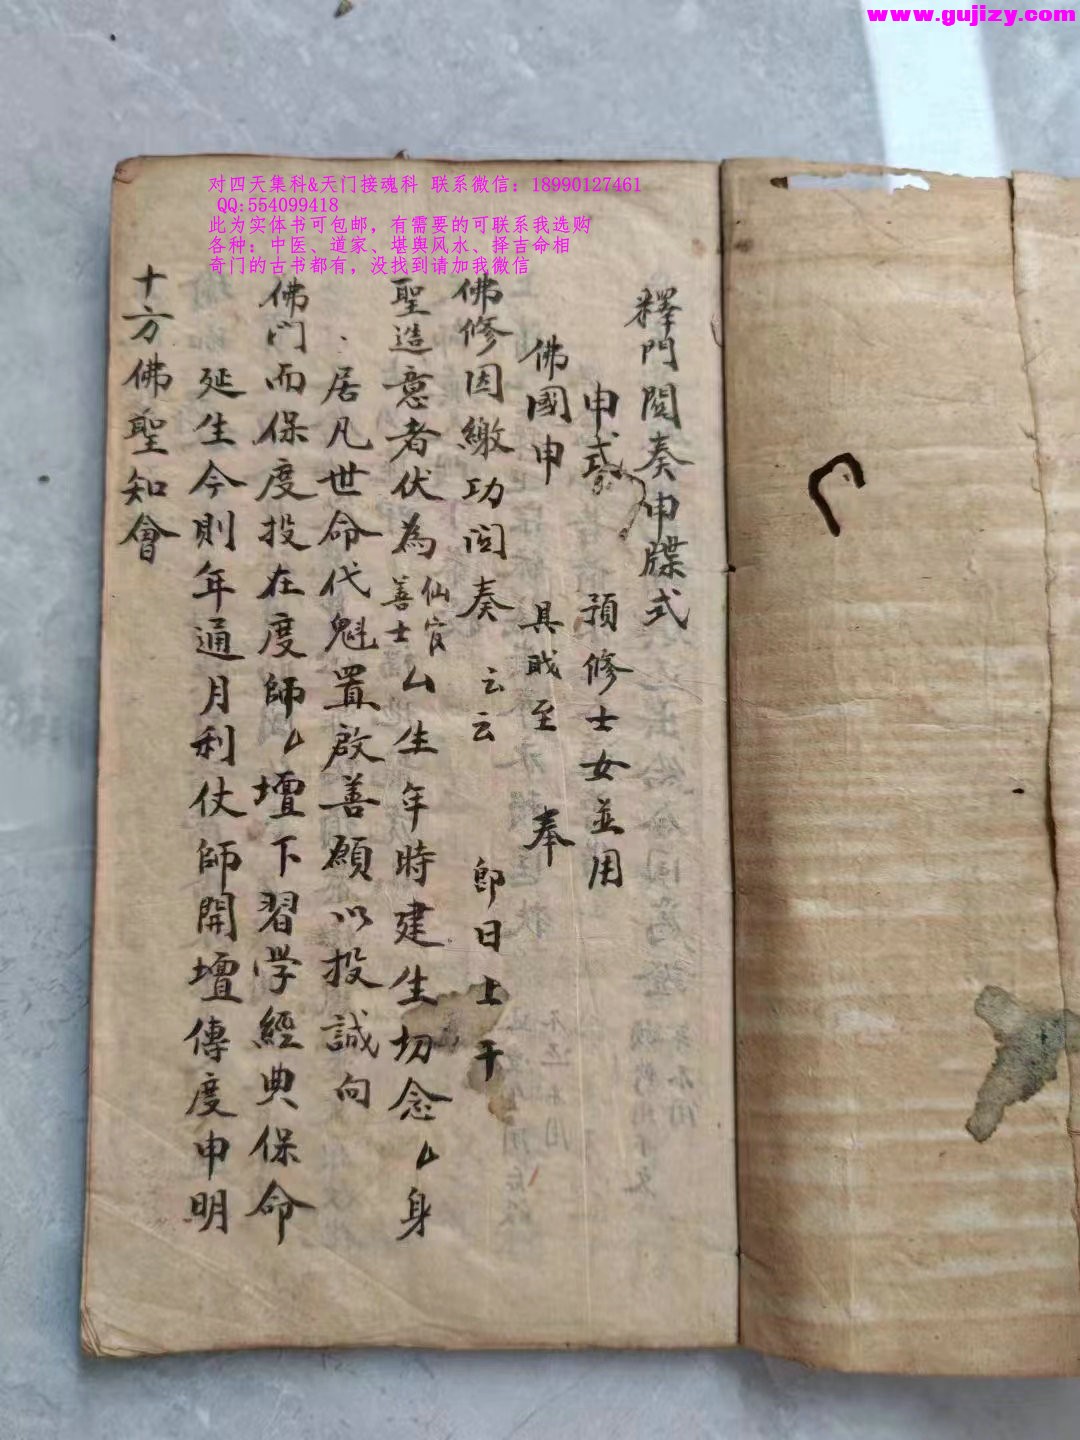 www.gujizy.com
对四天集科&天门接魂科 联系微信：18990127461
QQ:554099418
此为实体书可包邮，有需要的可联系我选购
各种：中医、道家、堪舆风水、择吉命相
奇门的古书都有，没找到请加我微信
釋門閱奏申牒式
申式 預修士女並用
佛國申 具戝至 奉
佛修因繳功閱奏 云云 即日上干
聖造意者伏為仙官善士厶生年時建生切念厶身
居凡世命代魁置啟善願以投誠向
佛門而保度投在度師厶壇下習学經典保命
延生今則年通月利仗師開壇傳度申明
十方佛聖知會